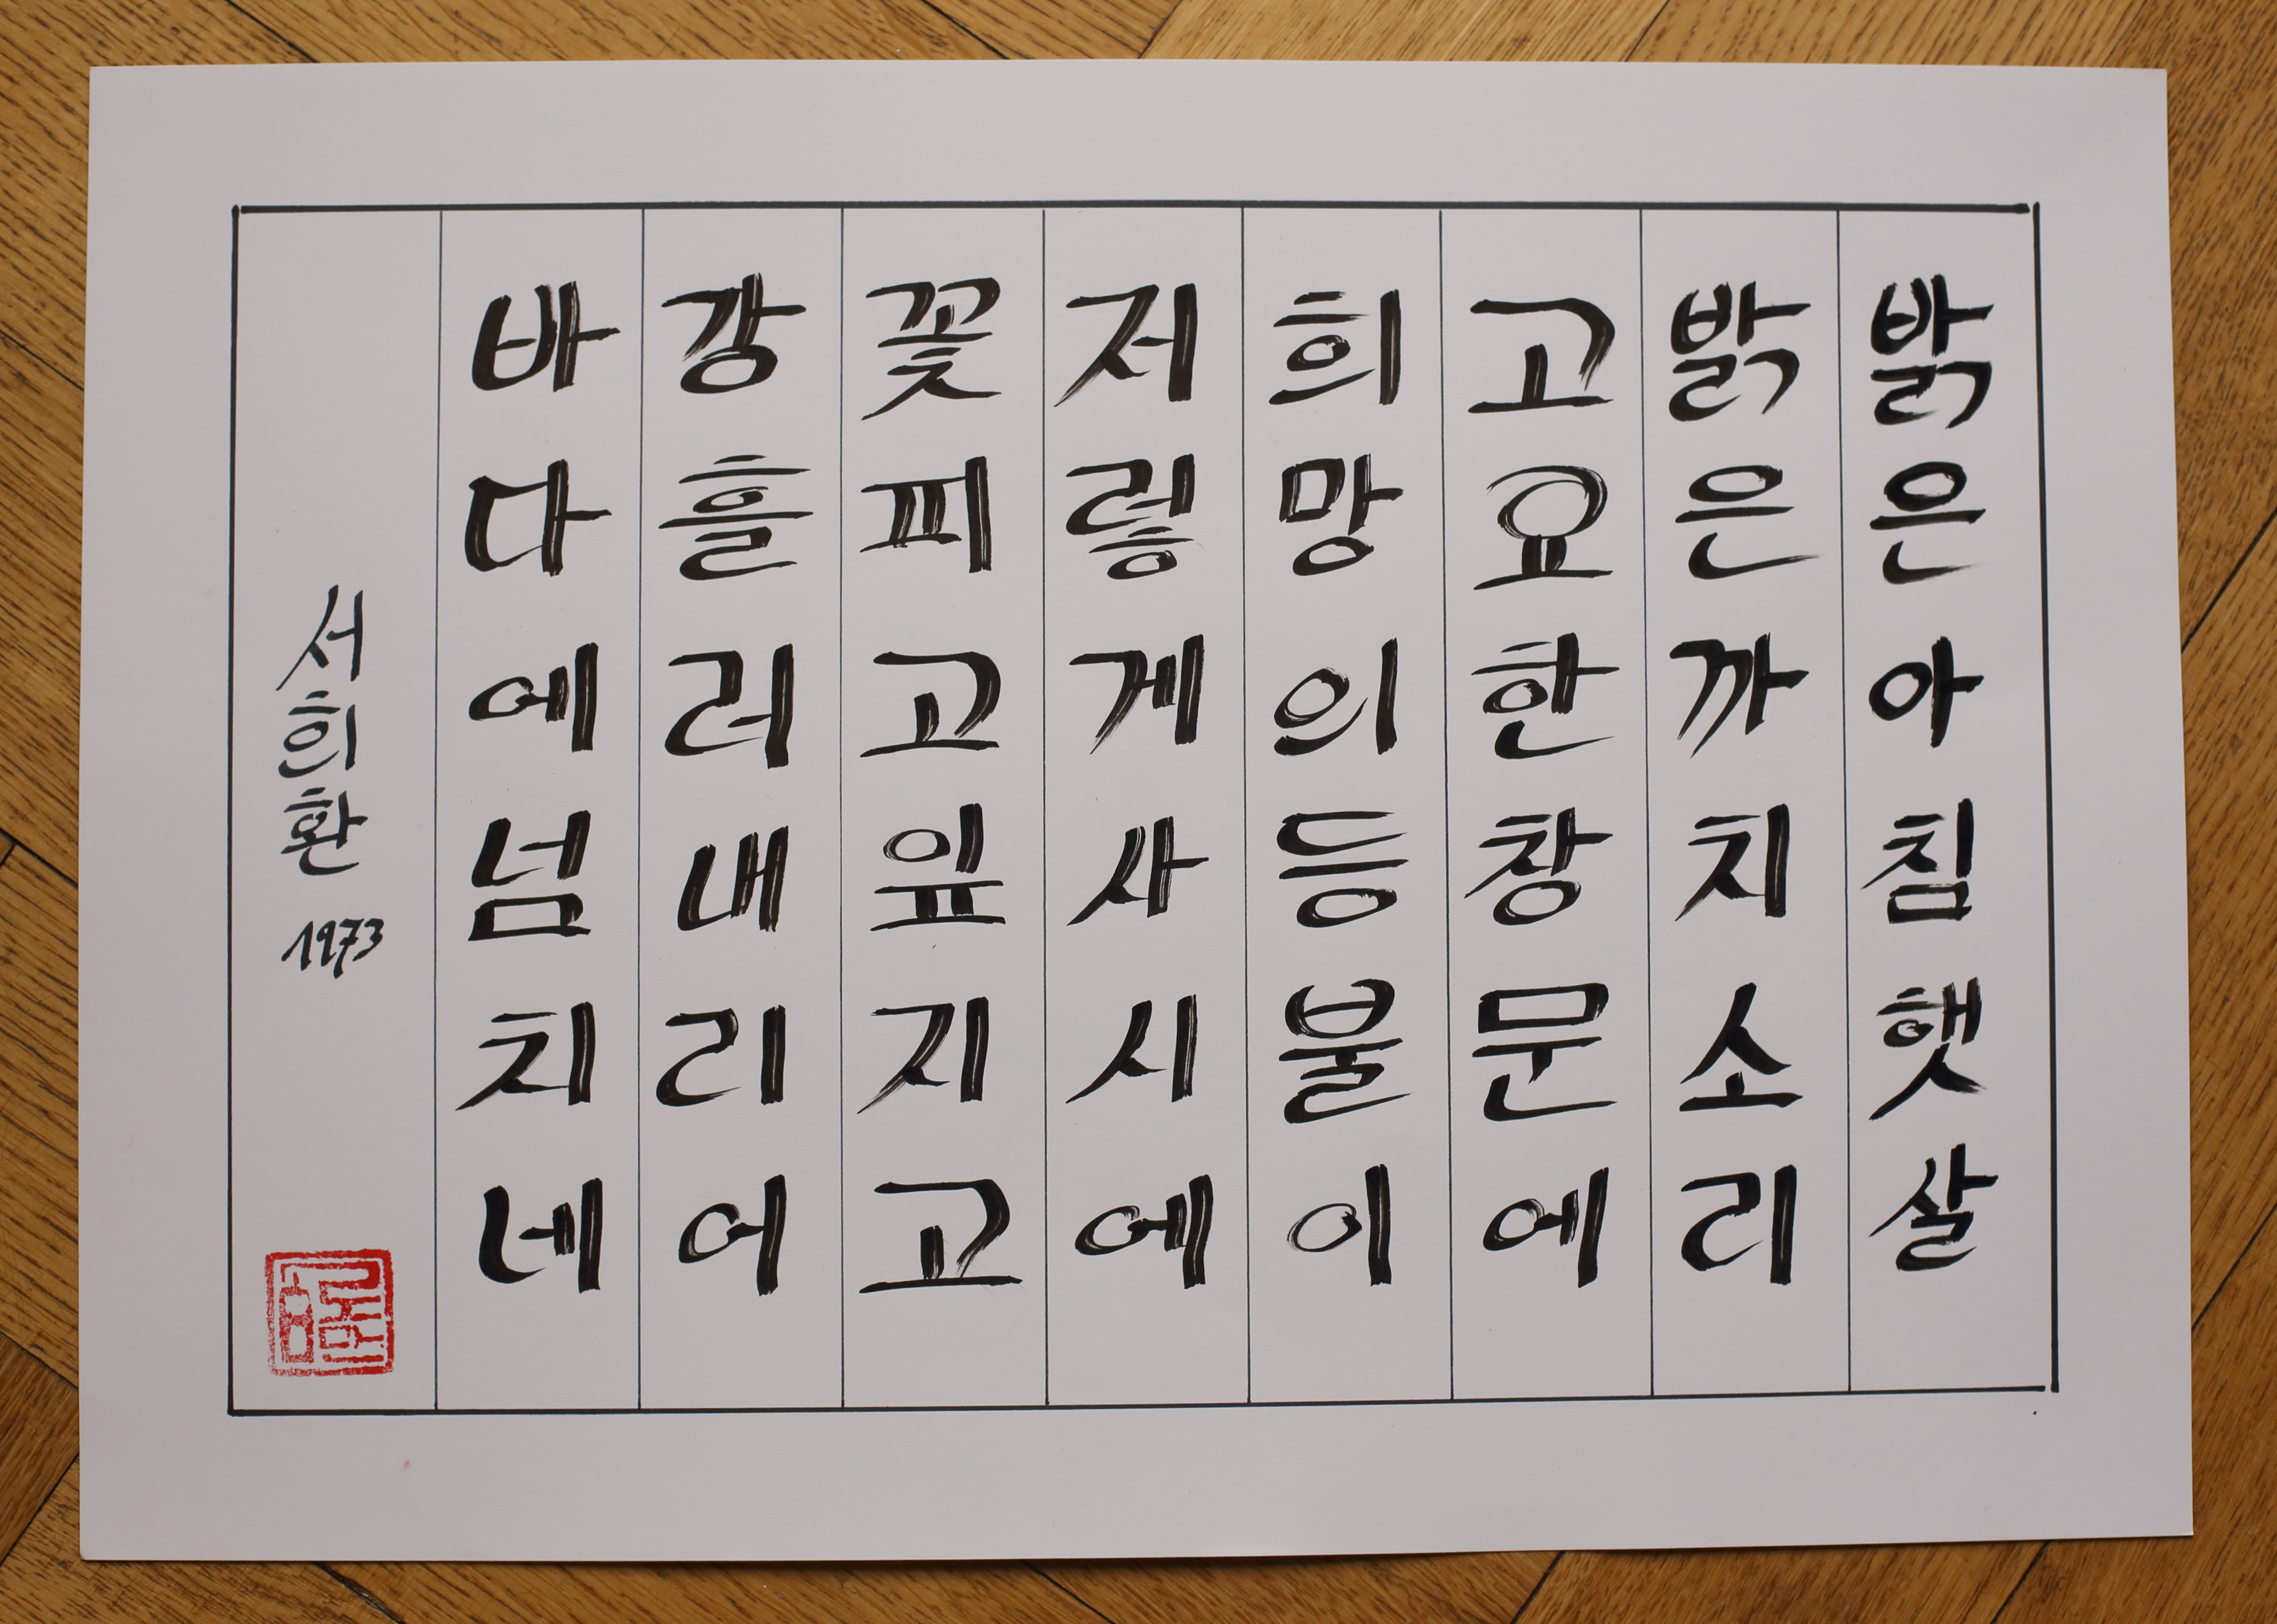 밝은아침햇살
밝은까치소리
고요한창문에
희망의등불이
저렇게사시에
꽃피고잎지고
강흘러내리어
바다에넘치네
서희환 1973